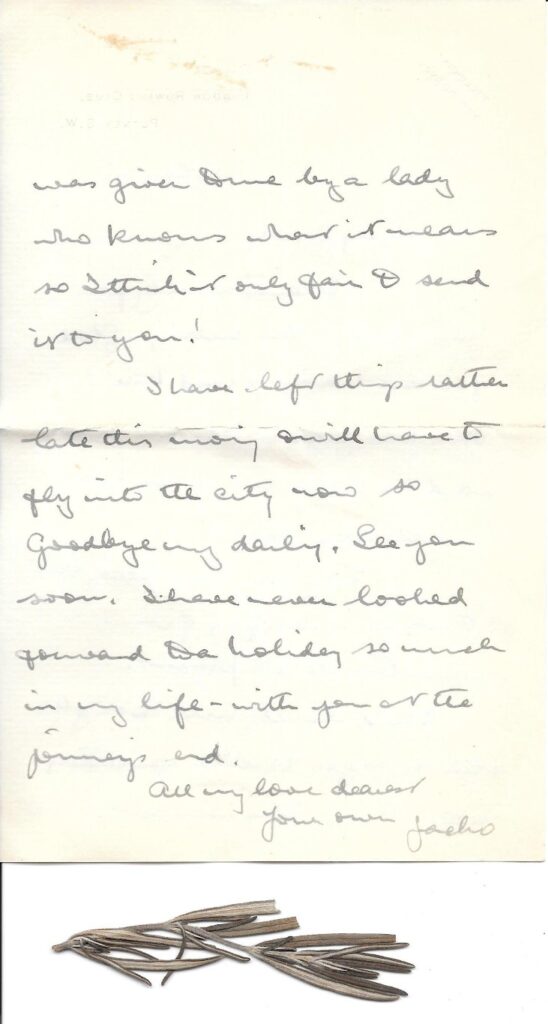 was given to me by a lady
who knows what it means
so I think it only fair to send
it to you!
I have left things rather
late this morning & will have to
fly into the city now so
Goodbye my darling. See you
soon. I have never looked
forward to a holiday so much
in my life - with you at the
journeys end.
All my love dearest
Your own Jacko